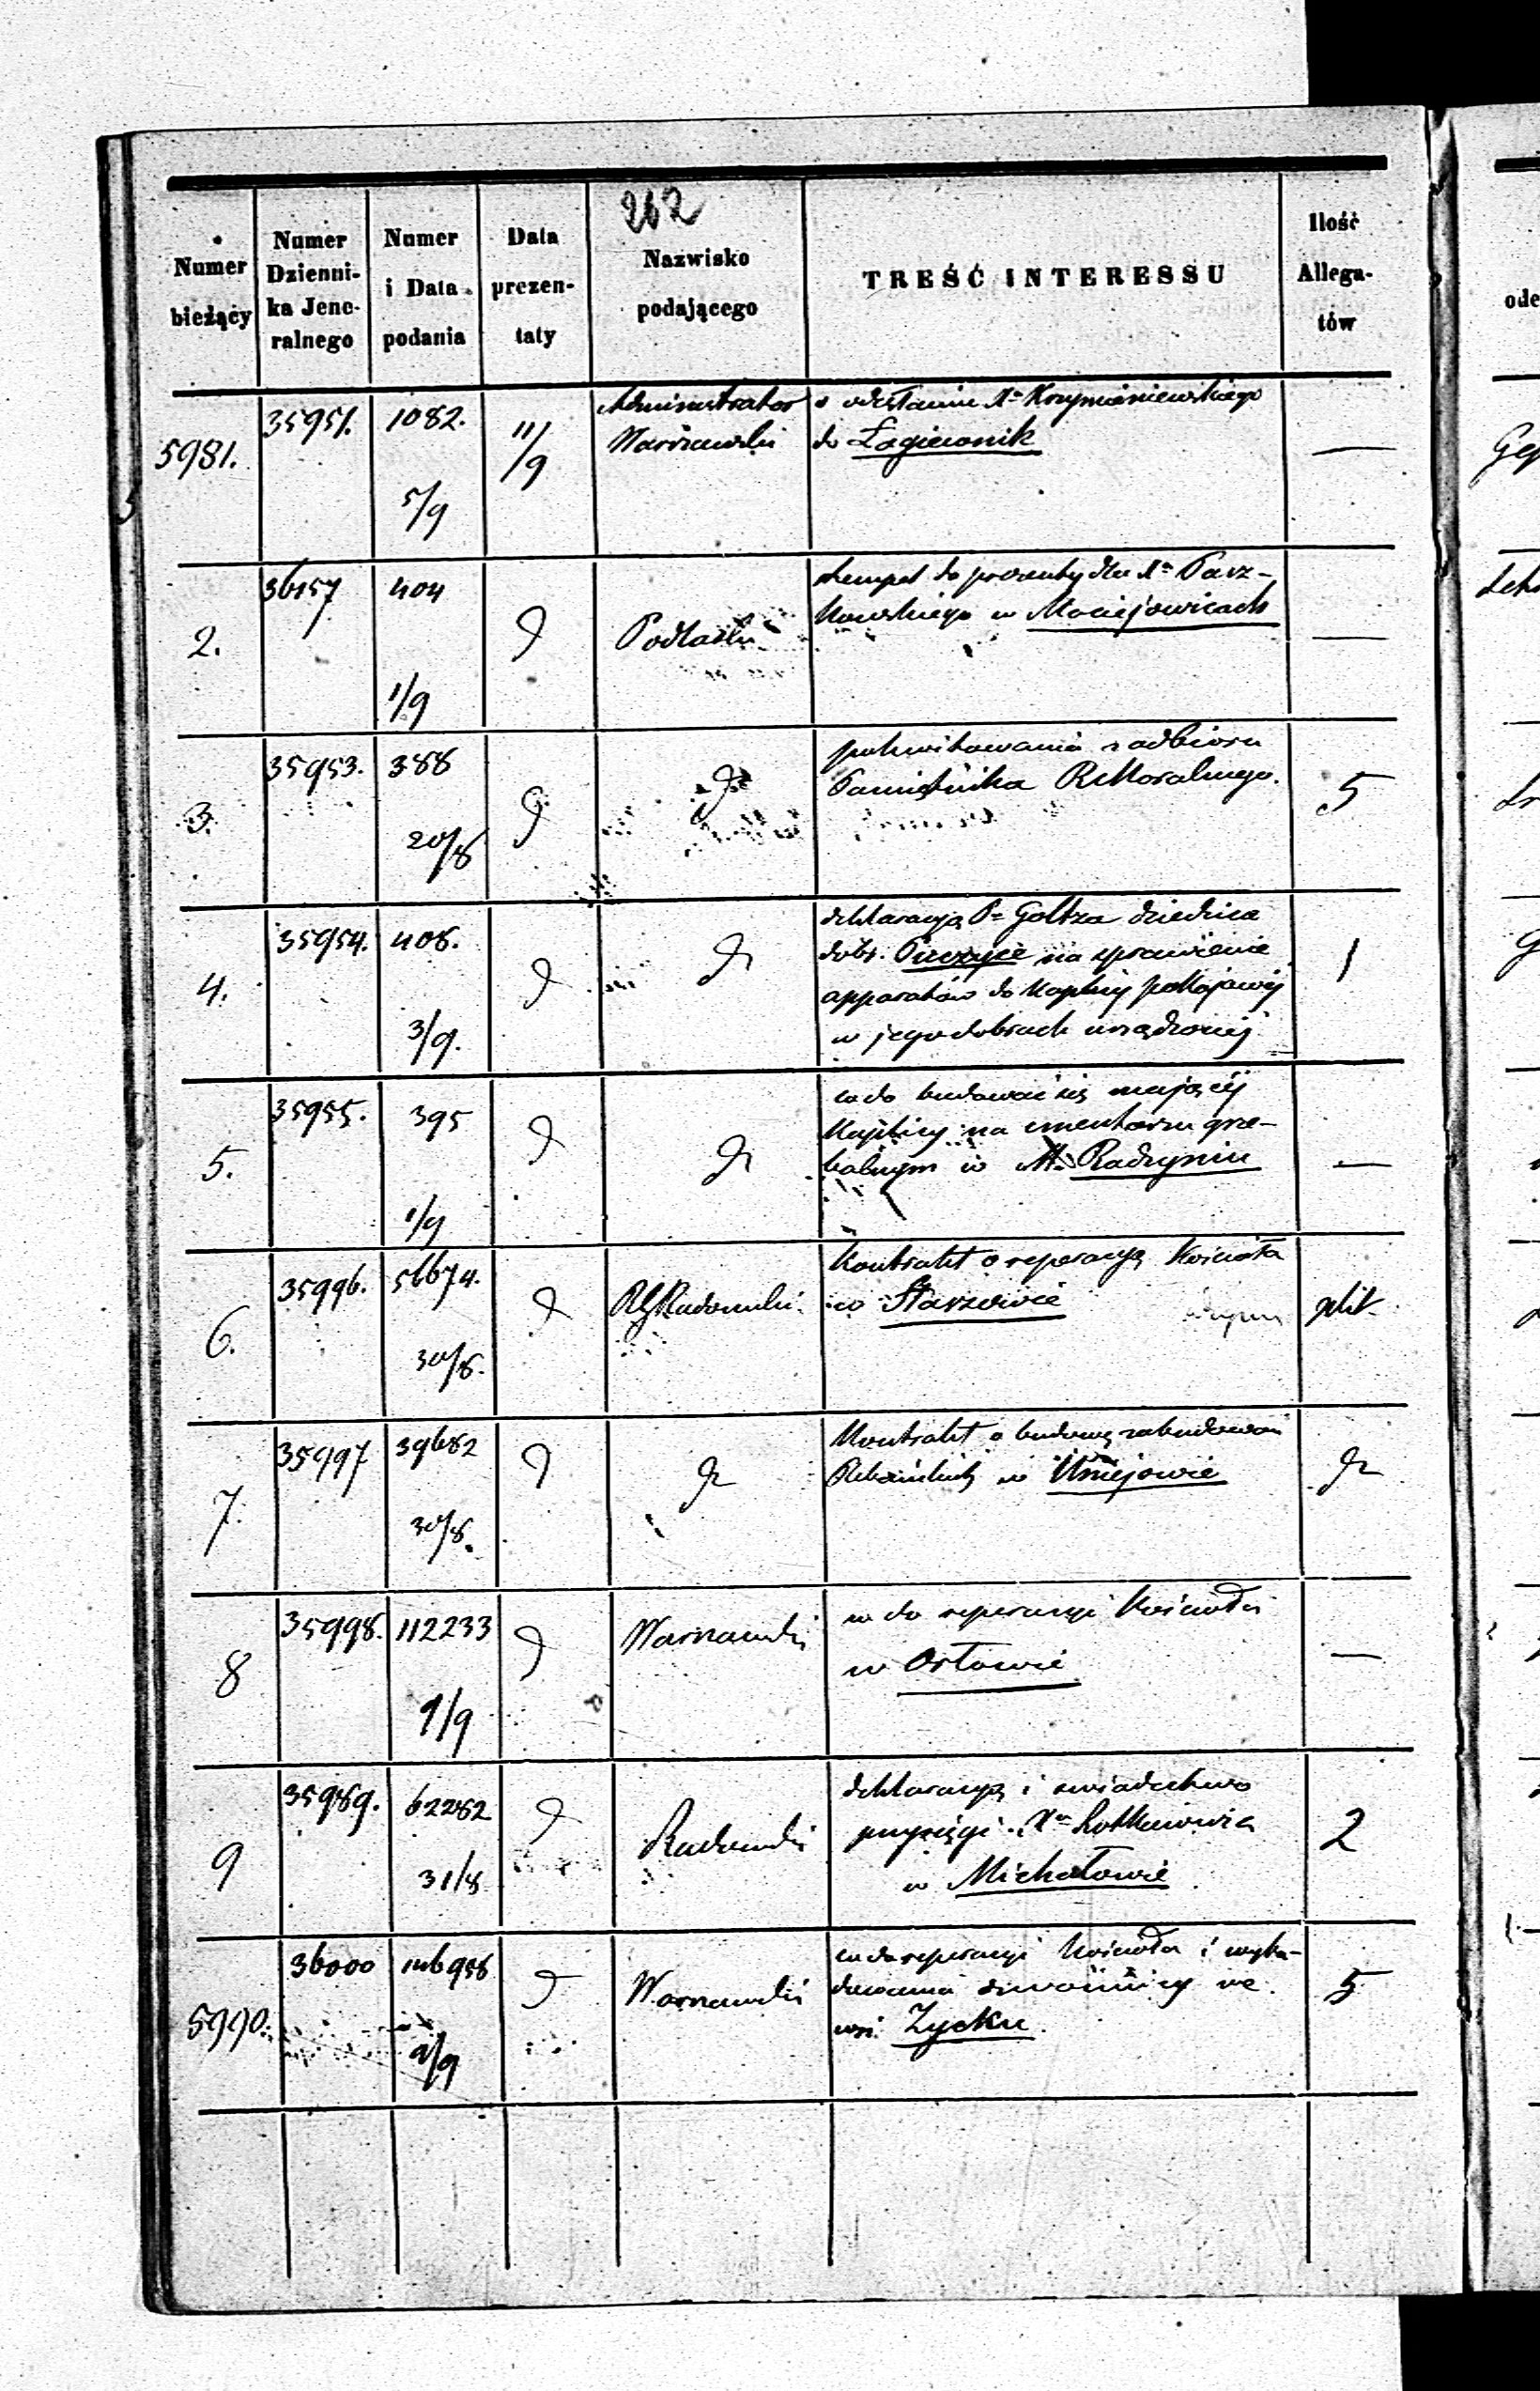 262
Numer bieżący
Numer Dzienni-
ka Jene-
ralnego
Numer
i Data
podania
Data
prezen-
taty
Nazwisko
podającego
TREŚĆ INTERESSU
Ilość
Allega-
tów
5981. 35951. 1082. 5/9 11/9 Administrator
Warszawski
o odesłanie Xa Krzymieniewskiego
do Łagiewnik —
2. 36157 404 1/9 Podlaski
stempel do prezenty dla Xa Parz-
kowskiego w Maciejowicach —
3. 35953. 388 20/8
pokwitowania z odbioru
Pamiętnika Rekoralnego. 5
4. 35954. 408. 3/9.
deklaracyą Pa Goltza dziedzica
dóbr. na sprawienie
apparatów do kaplicy pokojowej
w jego dobrach urządzonej 1
5. 35955. 395 1/9
co do budować się mającej
kaplicy na cmentarzu grze-
balnym w M. Radzyniu —
6. 35996. 56674. 30/8. RG Radomski
kontrakt o reperacyą kościoła
w Starzewie plik
7. 35997 39682 30/8.
kontrakt o budowę zabudowań
Plebańskich w Uniejowie
8 35998. 112233 9/9 Warszawski
co do reperacyi kościoła
w Orłowie —
9 35989. 62282 31/8 Radomski
deklaracyą i swiadectwo
przysięgi Xa
w Michałowie 2
5990. 36000 106958 9/9 Warszawski
co do reperacyi kościoła i wybu-
dowania dzwonnicy we
wsi Zycku 5